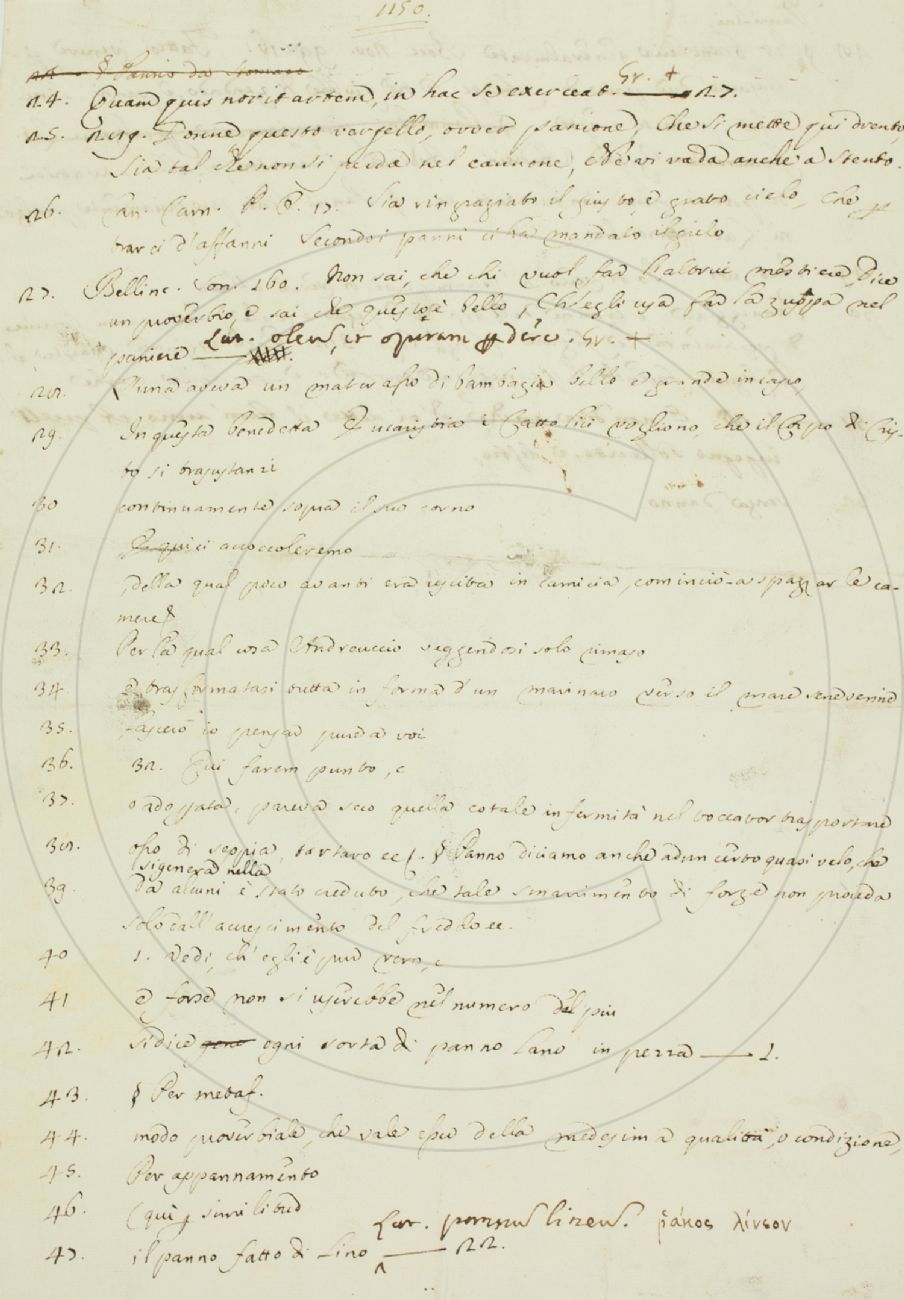 1150.
24. Quam quis norit artem, in hac se exerceat. Gr. + 27.
25. 219. Donne questo vergello, ovver panione, che si mette qui drento,
Sia tal che non si rieda nel cannone, Nè vi vada anche a stento.
26. Can. Carn. P. P. 17. Sia ringraziato il giusto, e grato cielo, Che p
trarci d'affanni Secondo i panni ci ha mandato il gielo
27. Bellinc. Son. 260. Non sai, che chi vuol far l'altrui mestiere, Dice
un proverbio, e sai che questo è bello, Ch'egli usa far la zuppa nel
paniere Lat. oleum, et operam perdere. Gr. +
28. L'una aveva un materasso di bambagia bello e grande in capo,
29. In questa benedetta Eucaristia i Cattolici vogliono, che il Corpo di Cris-
to si trasustanzi
30 continuamente sopra il suo corno
31. ci accoccoleremo
32. della qual poco avanti era uscita in camicia, cominciò a spazzar le ca-
mere
33. Per la qual cosa Andreuccio veggendosi solo rimaso
34. e trasformatasi tutta in forma d'un marinaro verso il mare sene venne
35. lascerò io pensar pure a voi
36. 32. Qui farem punto, e
37. o adoppata, pareva seco quella cotale infermità nel toccator trasportare
38. osso di seppia, tartaro ec. §. Panno diciamo anche ad un certo quasi velo, che
si genera nella
39. Da alcuni è stato creduto, che tale smarrimento di forze non proceda
solo dall'accrescimento del freddo ec.
40 1. Vedi, ch'egli è pur vero, e
41 e forse non si userebbe nel numero del più
42. si dice gene ogni sorta di panno lano in pezza 1.
43. § Per metaf.
44. modo proverbiale, che vale esser della medesima qualità, o condizione,
45. Per appannamento
46. (qui p similitud
47. il panno fatto di lino Lat. pannus lineus. ῥάκος λίνεον 22.